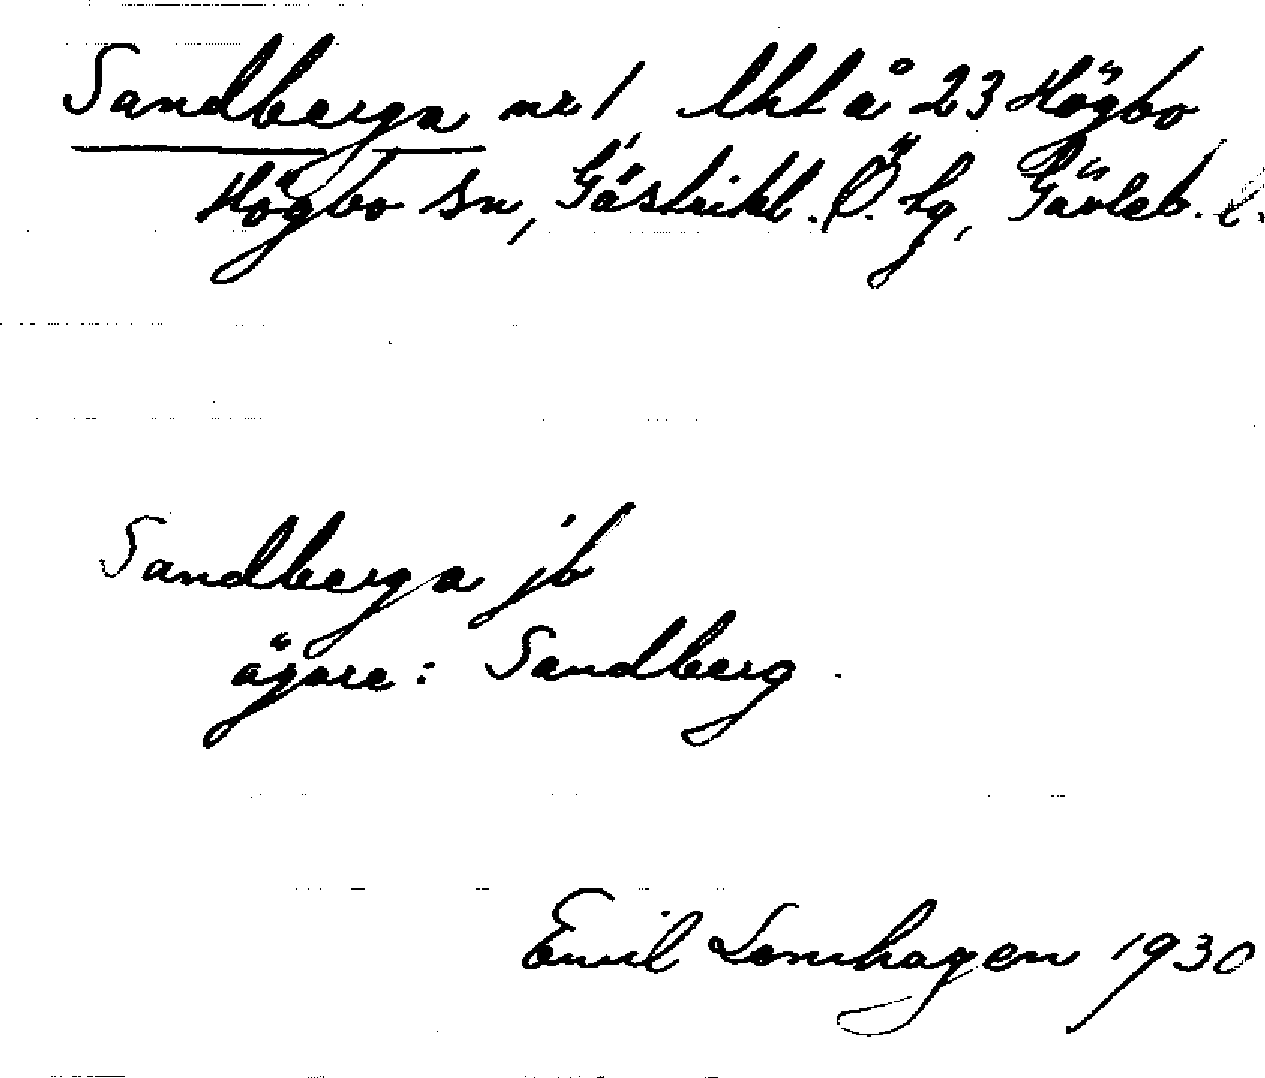 Sandberga nr 1 Uhl å 23 Högbo
Högbo sn, Gästrikl. Ö. tg, Gävleb. l.
Sandberga jb
ägare: Sandberg.
Emil Lomhagen 1930